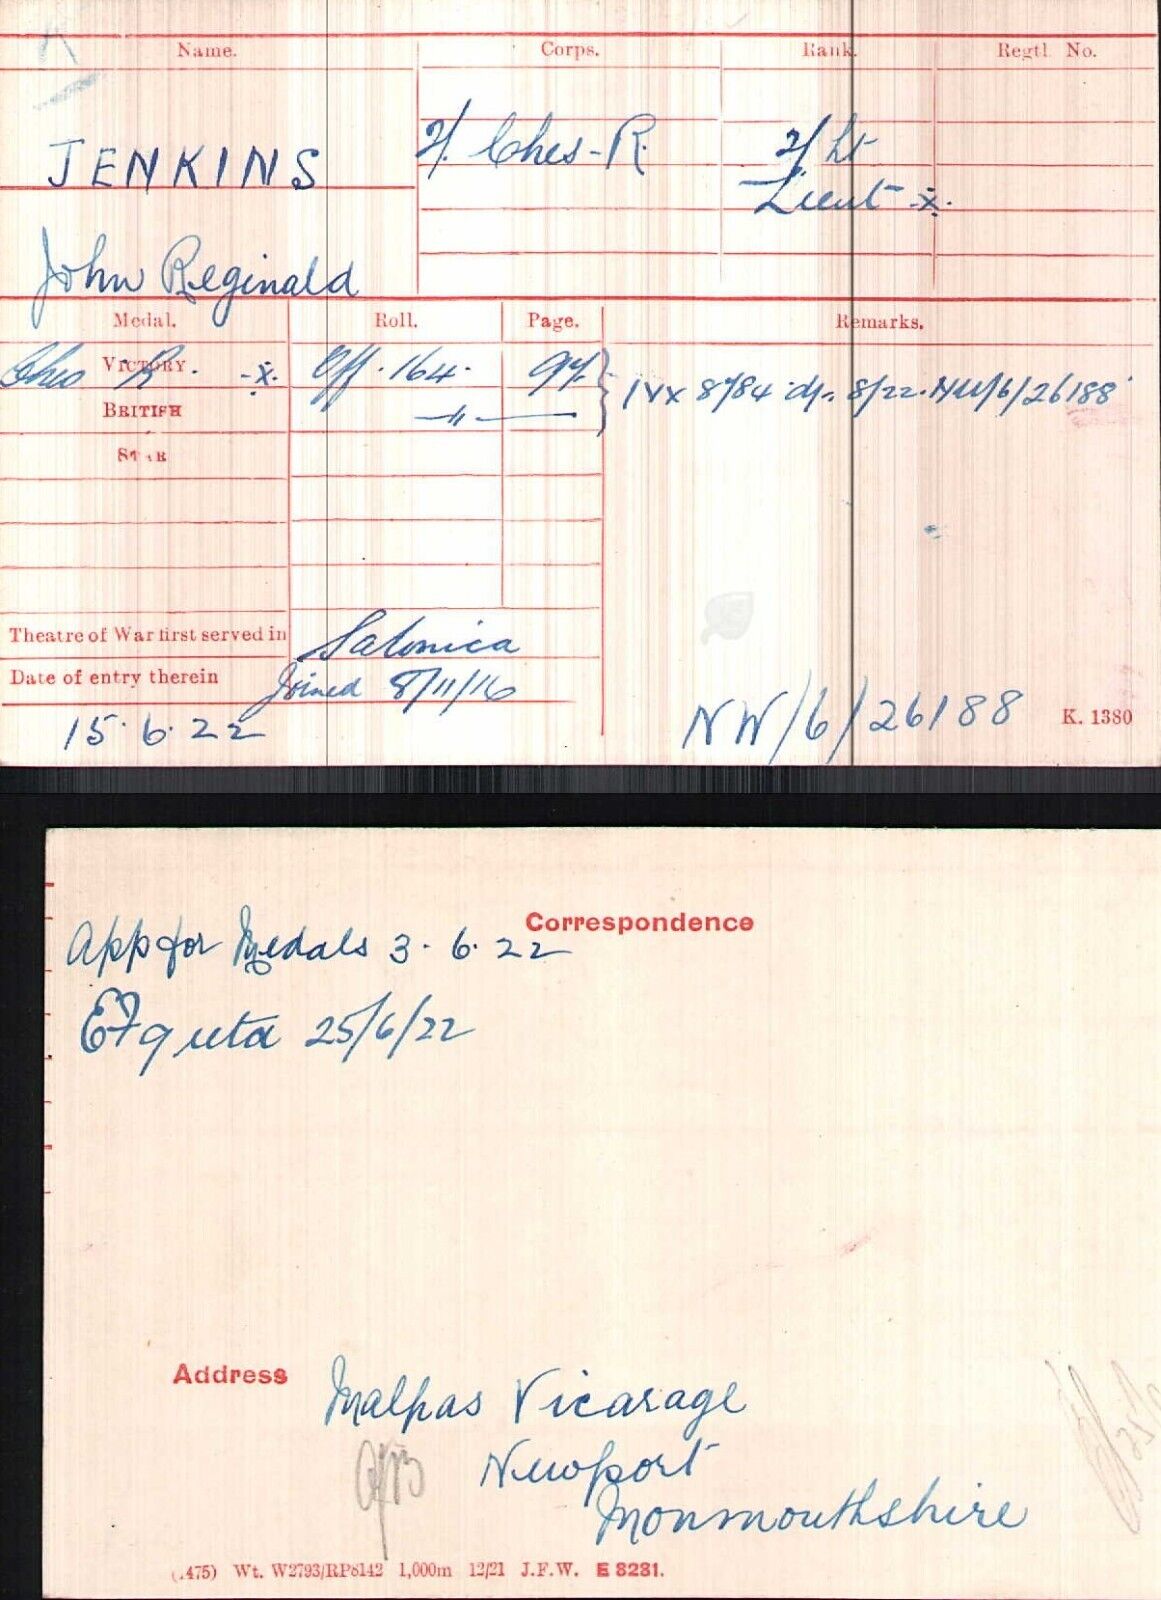 Name. Corps. Rank. Regtl. No.
JENKINS 2/. Ches-R. 2/Lt
Lieut -x-
John Reginald
Medal. Roll. Page. Remarks.
VICTORY Ches R. -x- Off. 164. 97. IVX 8784 8/22. NW/6/26188
BRITISH —"—
STAR
Theatre of War first served in Salonica
Date of entry therein Joined 8/11/16
15.6.22 NW/6/26188 K. 1380
Correspondence
App for Medals 3.6.22
EF 25/6/22
Address Malpas Vicarage
Newport
Monmouthshire
Wt. W2793/RP8142 1,000m 12/21 J.F.W. E 8281.